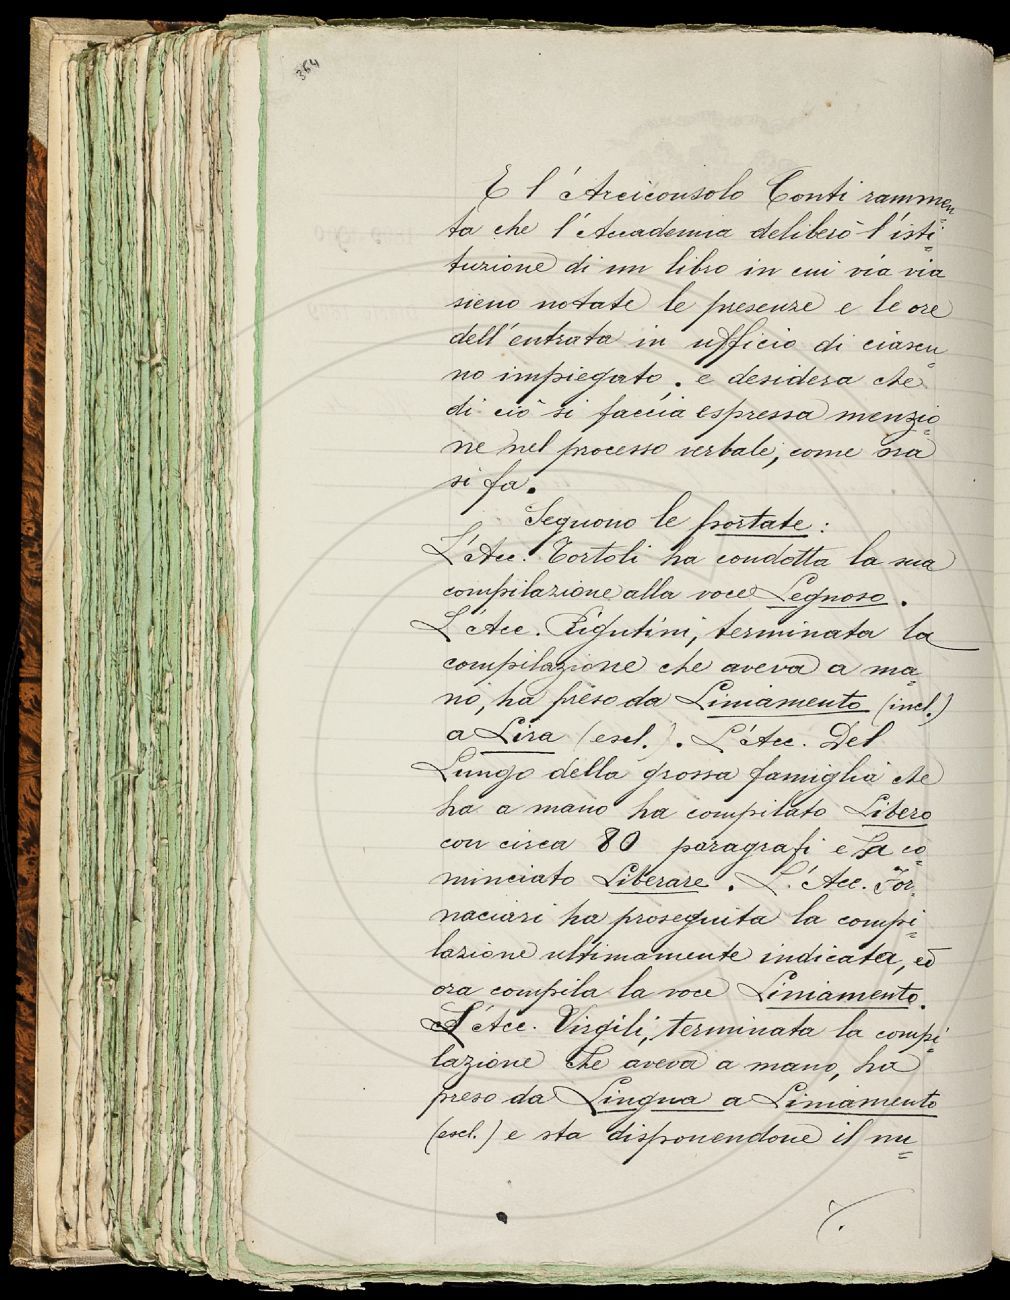 364
E l'Arciconsolo Conti rammen=
ta che l'Accademia deliberò l'isti=
tuzione di un libro in cui via via
sieno notate le presenze e le ore
dell'entrata in ufficio di ciascu=
no impiegato. e desidera che
di ciò si faccia espressa menzio=
ne nel processo verbale, come ora
si fa.
Seguono le portate:
L'Acc. Tortoli ha condotta la sua
compilazione alla voce Legnoso.
L'Acc. Rigutini, terminata la
compilazione che aveva a ma=
no, ha preso da Liniamento (incl.)
a Lira (escl.). L'Acc. Del
Lungo della grossa famiglia che
ha a mano ha compilato Libero
con circa 80 paragrafi e ha co=
minciato Liberare. L'Acc. For=
naciari ha proseguita la compi=
lazione ultimamente indicata, ed
ora compila la voce Liniamento.
L'Acc. Virgili, terminata la compi=
lazione che aveva a mano, ha
preso da Lingua a Liniamento
(escl.) e sta disponendone il nu=